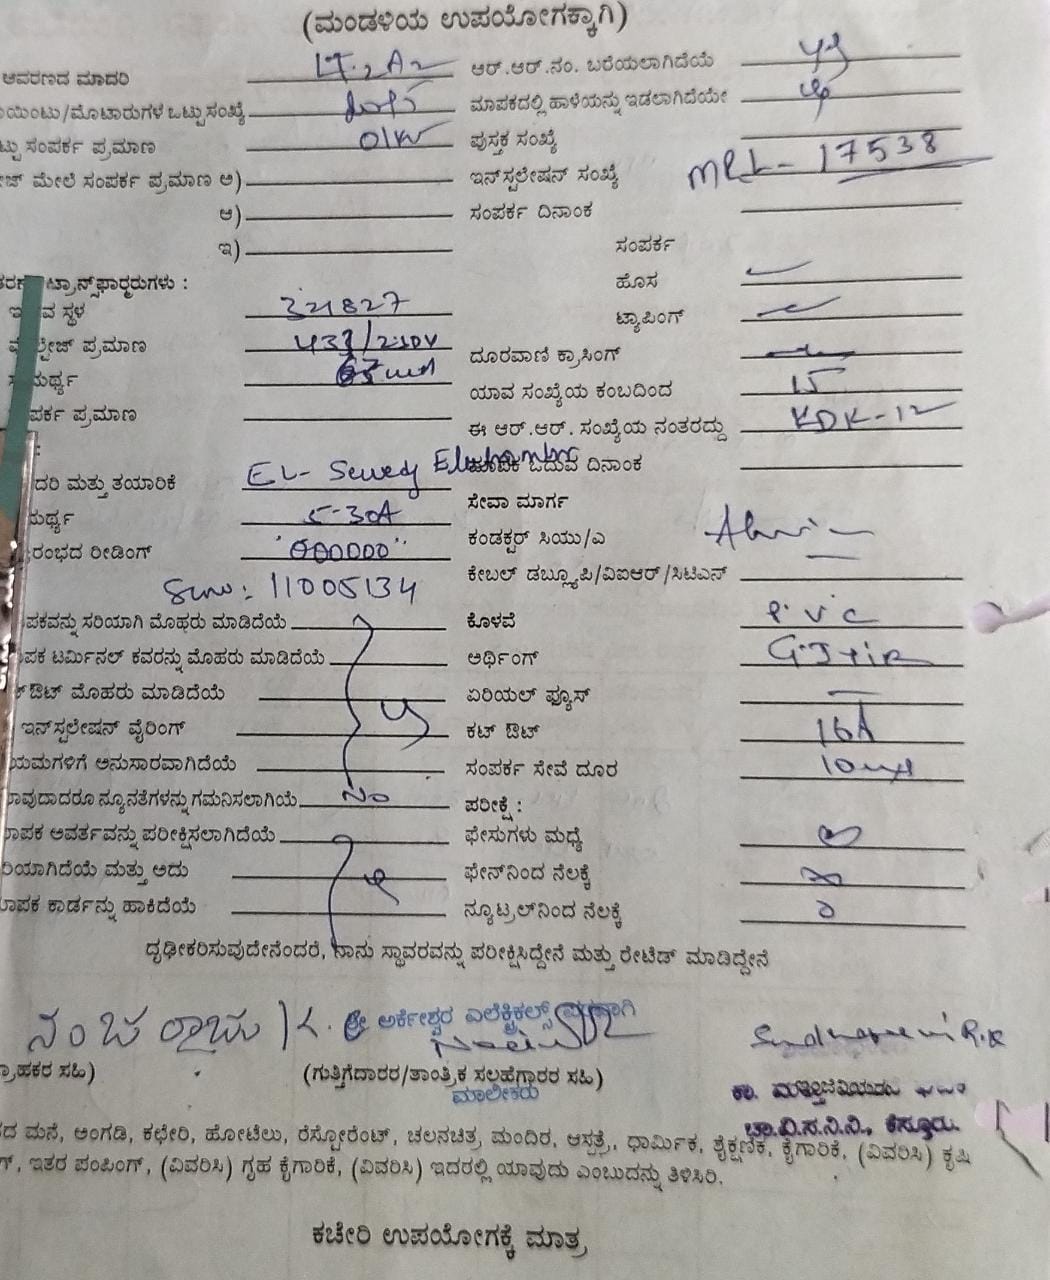 (ಮಂಡಳಿಯ ಉಪಯೋಗಕ್ಕಾಗಿ)
ಆವರಣದ ಮಾದರಿ LT-2A2 ಆರ್.ಆರ್.ನಂ. ಬರೆಯಲಾಗಿದೆಯೆ
ಯಿಂಟು/ಮೊಟಾರುಗಳ ಒಟ್ಟು ಸಂಖ್ಯೆ ಮಾಪಕದಲ್ಲಿ ಹಾಳೆಯನ್ನು ಇಡಲಾಗಿದೆಯೇ
ಟ್ಟು ಸಂಪರ್ಕ ಪ್ರಮಾಣ 01kw ಪುಸ್ತಕ ಸಂಖ್ಯೆ
ಜ್ ಮೇಲೆ ಸಂಪರ್ಕ ಪ್ರಮಾಣ ಅ) ಇನ್‌ಸ್ಟಲೇಷನ್ ಸಂಖ್ಯೆ MRL- 17538
ಆ) ಸಂಪರ್ಕ ದಿನಾಂಕ
ಇ) ಸಂಪರ್ಕ
ಟ್ರಾನ್ಸ್‌ಫಾರ್ಮರುಗಳು : ಹೊಸ
ವ ಸ್ಥಳ 321827 ಟ್ಯಾಪಿಂಗ್
ಲ್ಟೇಜ್ ಪ್ರಮಾಣ 433/230V ದೂರವಾಣಿ ಕ್ರಾಸಿಂಗ್
ಮರ್ಥ್ಯ ಯಾವ ಸಂಖ್ಯೆಯ ಕಂಬದಿಂದ 15
ಪರ್ಕ ಪ್ರಮಾಣ ಈ ಆರ್.ಆರ್. ಸಂಖ್ಯೆಯ ನಂತರದ್ದು KDK-12
: ಮಾಪಕ ಓದುವ ದಿನಾಂಕ
ದರಿ ಮತ್ತು ತಯಾರಿಕೆ EL- Sewedy ಸೇವಾ ಮಾರ್ಗ
ಮರ್ಥ್ಯ 5-30A ಕಂಡಕ್ಟರ್ ಸಿಯು/ಎ
ರಂಭದ ರೀಡಿಂಗ್ "000000" ಕೇಬಲ್ ಡಬ್ಲ್ಯೂಪಿ/ವಿಐಆರ್/ಸಿಟಿಎನ್
11005134
ಪಕವನ್ನು ಸರಿಯಾಗಿ ಮೊಹರು ಮಾಡಿದೆಯೆ ಕೊಳವೆ P.V.C
ಪಕ ಟರ್ಮಿನಲ್ ಕವರನ್ನು ಮೊಹರು ಮಾಡಿದೆಯೆ ಅರ್ಥಿಂಗ್
ಔಟ್ ಮೊಹರು ಮಾಡಿದೆಯೆ ಏರಿಯಲ್ ಫ್ಯೂಸ್ —
ಇನ್‌ಸ್ಟಲೇಷನ್ ವೈರಿಂಗ್ ಕಟ್ ಔಟ್ 16A
ಯಮಗಳಿಗೆ ಅನುಸಾರವಾಗಿದೆಯೆ ಸಂಪರ್ಕ ಸೇವೆ ದೂರ
ಾವುದಾದರೂ ನ್ಯೂನತೆಗಳನ್ನು ಗಮನಿಸಲಾಗಿಯೆ No ಪರೀಕ್ಷೆ :
ಾಪಕ ಅವರ್ತವನ್ನು ಪರೀಕ್ಷಿಸಲಾಗಿದೆಯೆ ಫೇಸುಗಳು ಮಧ್ಯೆ
ರಿಯಾಗಿದೆಯೆ ಮತ್ತು ಅದು ಫೇಸ್‌ನಿಂದ ನೆಲಕ್ಕೆ
ಾಪಕ ಕಾರ್ಡನ್ನು ಹಾಕಿದೆಯೆ ನ್ಯೂಟ್ರಲ್‌ನಿಂದ ನೆಲಕ್ಕೆ
ದೃಢೀಕರಿಸುವುದೇನೆಂದರೆ, ನಾನು ಸ್ಥಾವರವನ್ನು ಪರೀಕ್ಷಿಸಿದ್ದೇನೆ ಮತ್ತು ರೇಟೆಡ್ ಮಾಡಿದ್ದೇನೆ
ನಂಜ ರಾಜು |< . ಶ್ರೀ ಅರ್ಕೇಶ್ವರ ಎಲೆಕ್ಟ್ರಿಕಲ್ಸ್ ಪರವಾಗಿ
ರಾಹಕರ ಸಹಿ) (ಗುತ್ತಿಗೆದಾರರ/ತಾಂತ್ರಿಕ ಸಲಹೆಗಾರರ ಸಹಿ)
ಮಾಲೀಕರು
ಚಾ.ವಿ.ಸ.ನಿ.ನಿ., ಕೆಸ್ತೂರು.
ದ ಮನೆ, ಅಂಗಡಿ, ಕಛೇರಿ, ಹೋಟೆಲು, ರೆಸ್ಟೋರೆಂಟ್, ಚಲನಚಿತ್ರ ಮಂದಿರ, ಆಸ್ಪತ್ರೆ, ಧಾರ್ಮಿಕ, ಶೈಕ್ಷಣಿಕ, ಕೈಗಾರಿಕೆ, (ವಿವರಿಸಿ) ಕೃಷಿ
ಗ್, ಇತರ ಪಂಪಿಂಗ್, (ವಿವರಿಸಿ) ಗೃಹ ಕೈಗಾರಿಕೆ, (ವಿವರಿಸಿ) ಇದರಲ್ಲಿ ಯಾವುದು ಎಂಬುದನ್ನು ತಿಳಿಸಿರಿ.
ಕಚೇರಿ ಉಪಯೋಗಕ್ಕೆ ಮಾತ್ರ